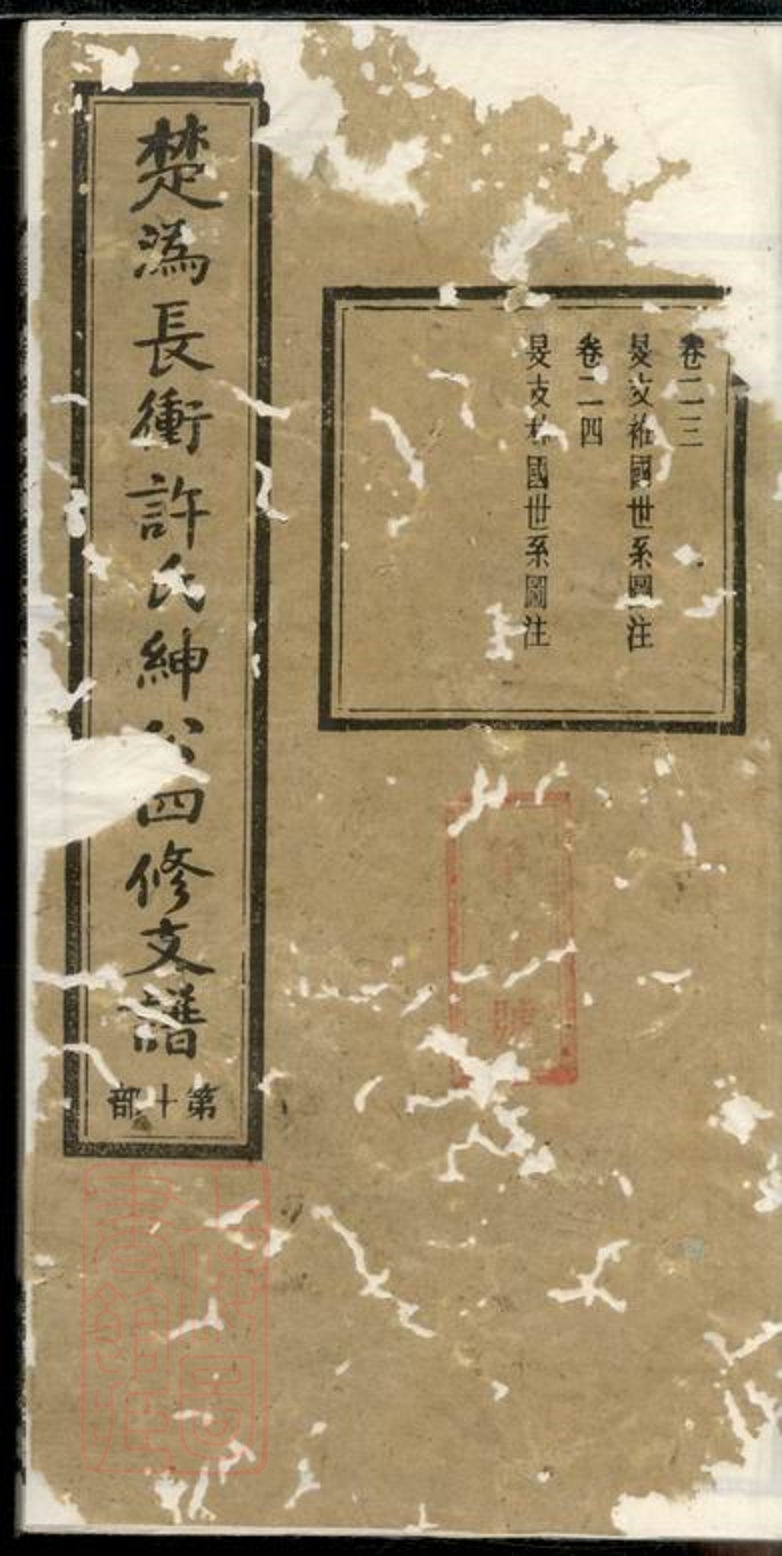 卷二三
旻支國世系圖注
卷二四
旻支國世系圖注
楚溈長衝許氏紳公四修支譜
第十部
號